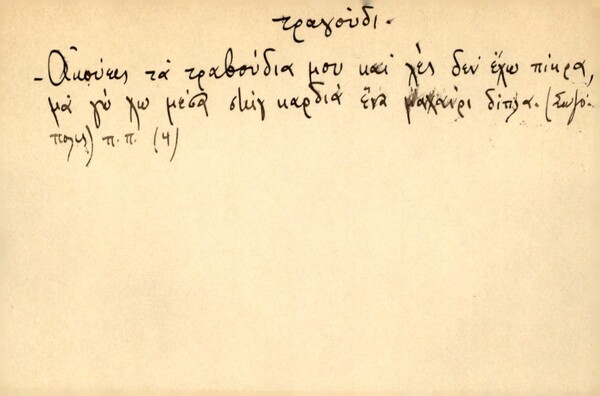 τραγούδι.
- Ἀκούεις τὰ τραβούδια μου καὶ λὲς δὲν ἔχω πίκρα,
μὰ γὼ χω μέσα στὴν καρδιά ἕνα μαχαίρι δίπλα. (Σωζό-
πολις) π.π. (4)